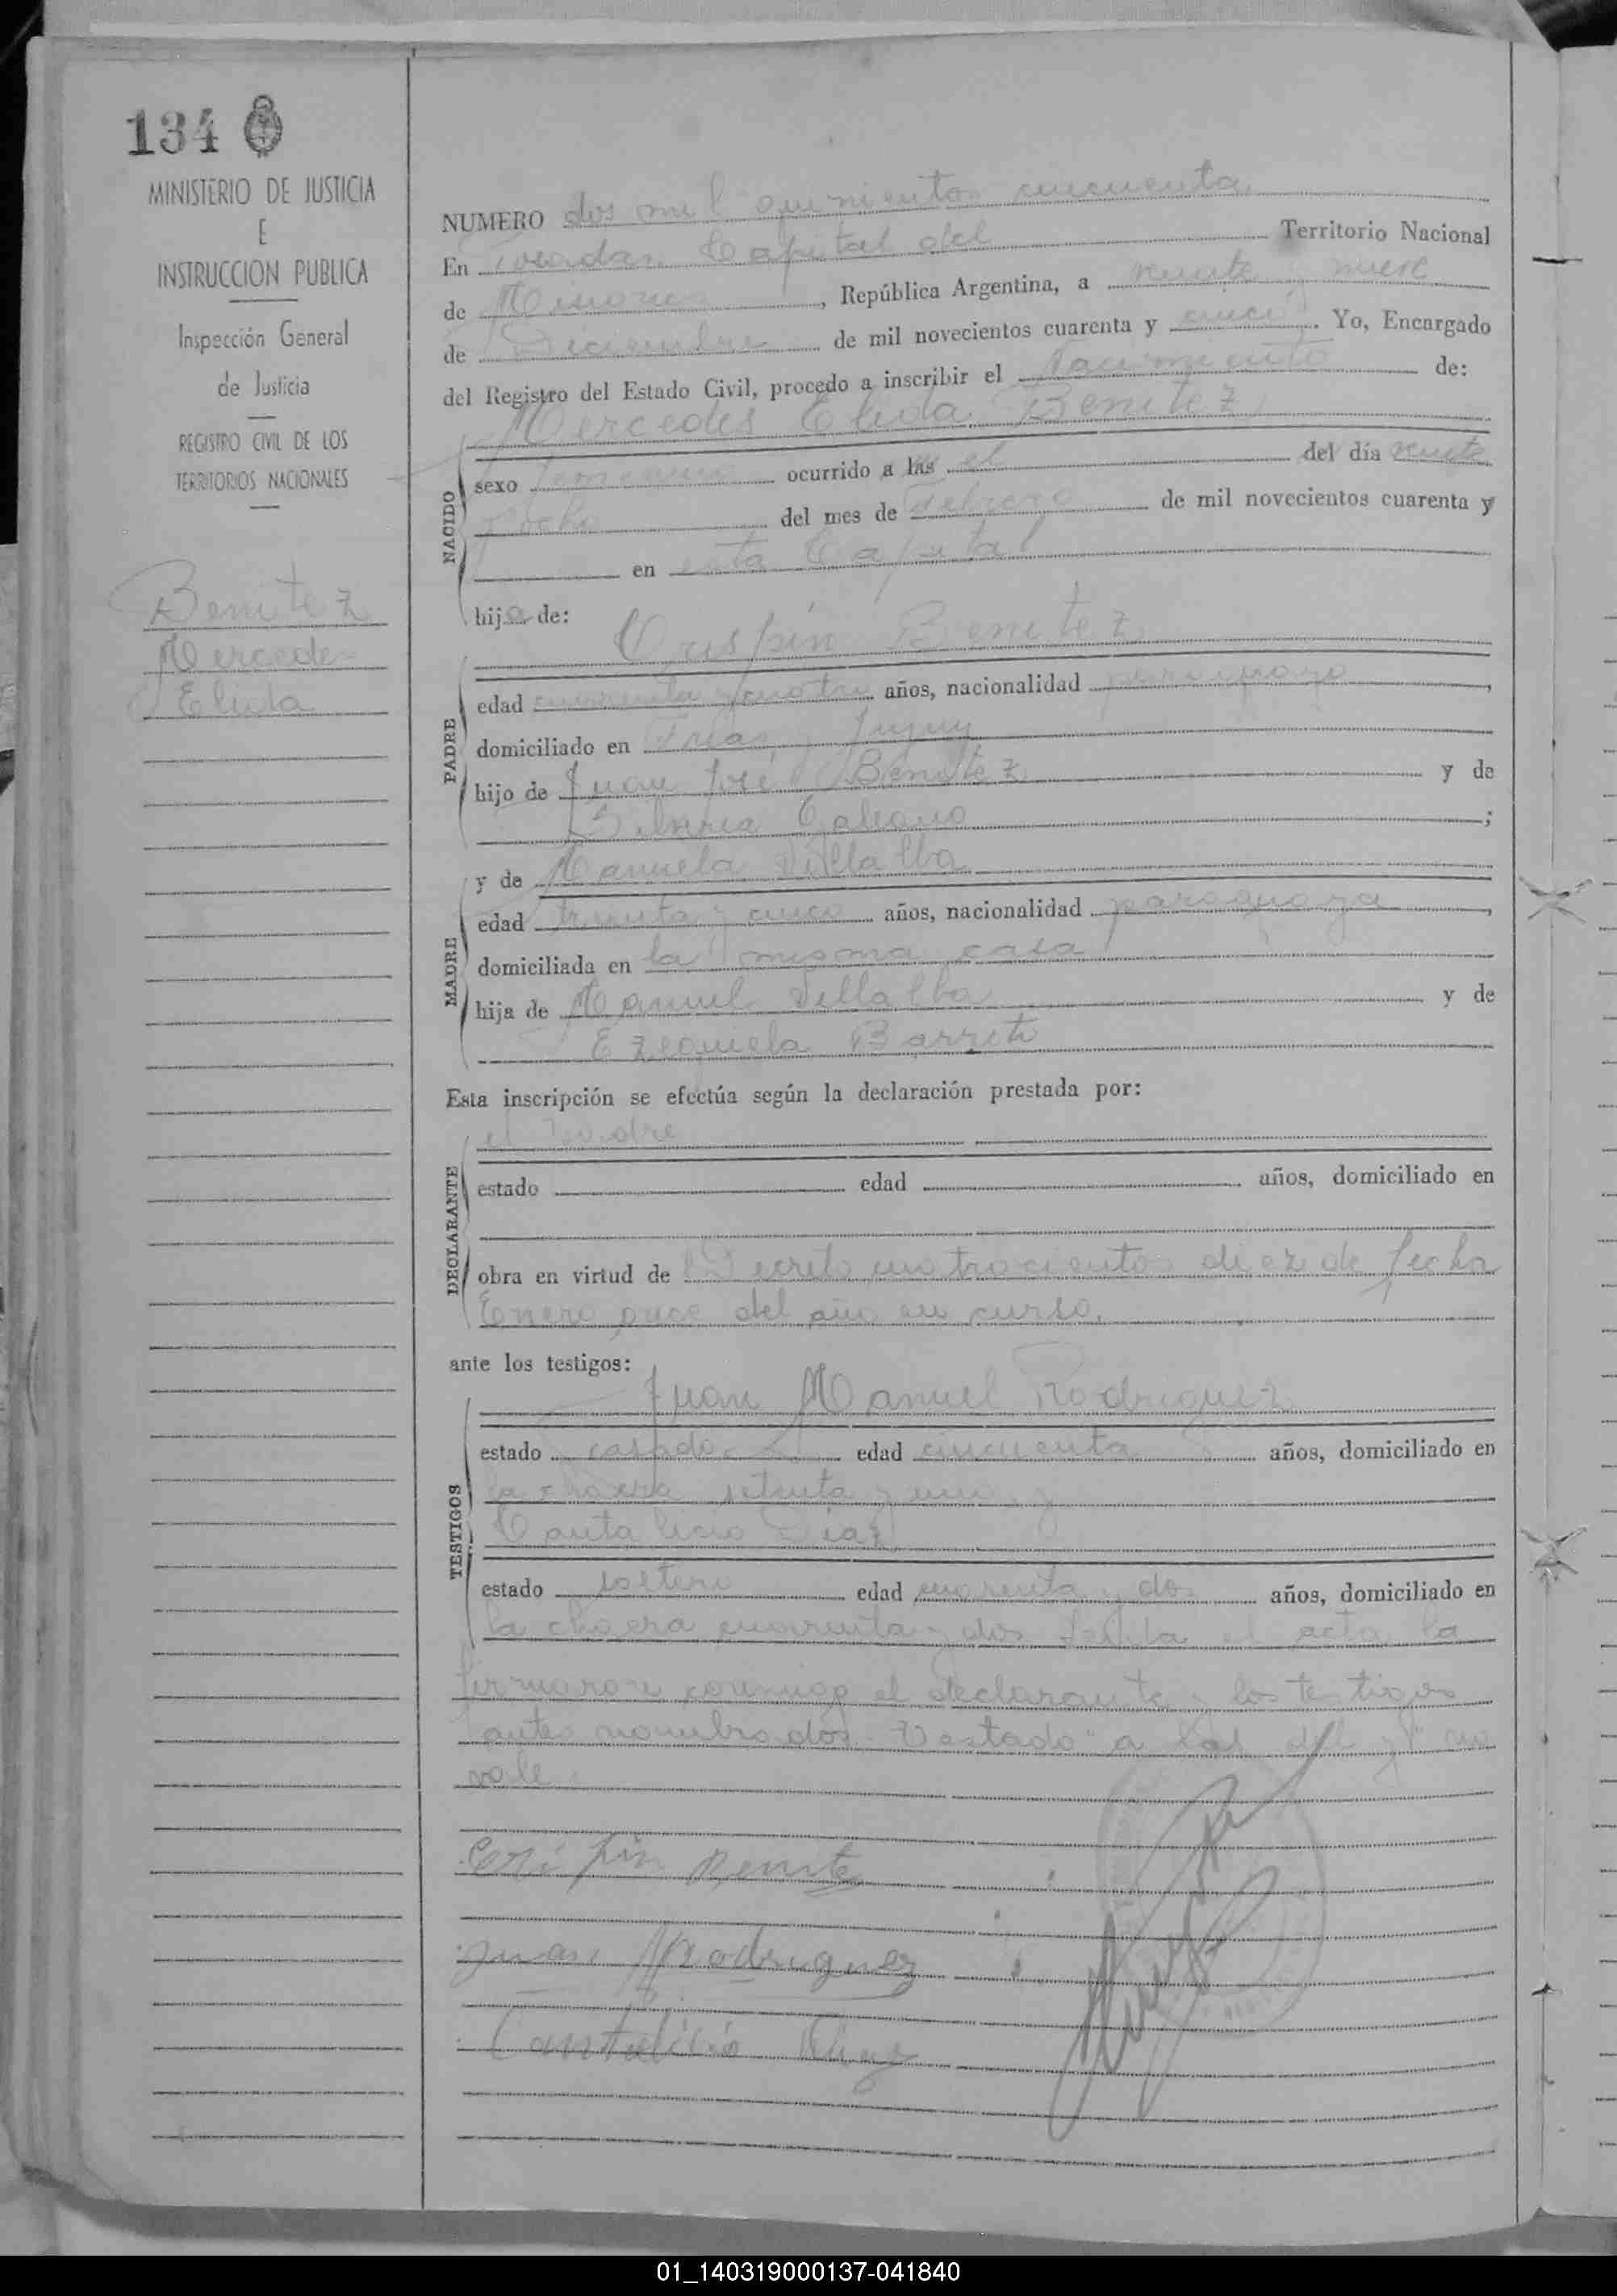 134
MINISTERIO DE JUSTICIA
E
INSTRUCCION PUBLICA
Inspección General
de Justicia
REGISTRO CIVIL DE LOS
TERRITORIOS NACIONALES
Benitez
Mercedes
Elida
NUMERO dos mil quinientos cincuenta
En Posadas Capital del Territorio Nacional
de Misiones, República Argentina, a veinte y nueve
de Diciembre de mil novecientos cuarenta y cinco. Yo, Encargado
del Registro del Estado Civil, procedo a inscribir el Nacimiento de:
Mercedes Elida Benitez
NACIDO
sexo femenino ocurrido a las el del día veinte
y ocho del mes de Febrero de mil novecientos cuarenta y
en esta Capital
hija de:
Crispín Benitez
PADRE
edad cuarenta y cuatro años, nacionalidad paraguayo,
domiciliado en Frias y Jujuy
hijo de Juan José Benitez y de
Silveria Galeano;
y de Manuela Villalba
MADRE
edad treinta y cinco años, nacionalidad paraguaya,
domiciliada en la misma casa
hija de Manuel Villalba y de
Ezequiela Barreto
Esta inscripción se efectúa según la declaración prestada por:
el padre
DECLARANTE
estado edad años, domiciliado en
obra en virtud de Decreto cuatrocientos diez de fecha
Enero once del año en curso,
ante los testigos:
Juan Manuel Rodriguez
TESTIGOS
estado casado edad cincuenta años, domiciliado en
la chacra setenta y uno, y
Cantalicio Diaz
estado soltero edad cuarenta y dos años, domiciliado en
la chacra cuarenta y dos el acta la
firmaron conmigo el declarante y los testigos
antes nombrados. Testado "a las del y" no
vale
Crispin Benitez
Juan M Rodriguez
Cantalicio Diaz
01_140319000137-041840